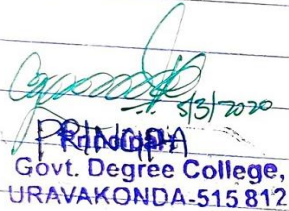 5/3/2020
PRINCIPAL
Govt. Degree College,
URAVAKONDA-515 812